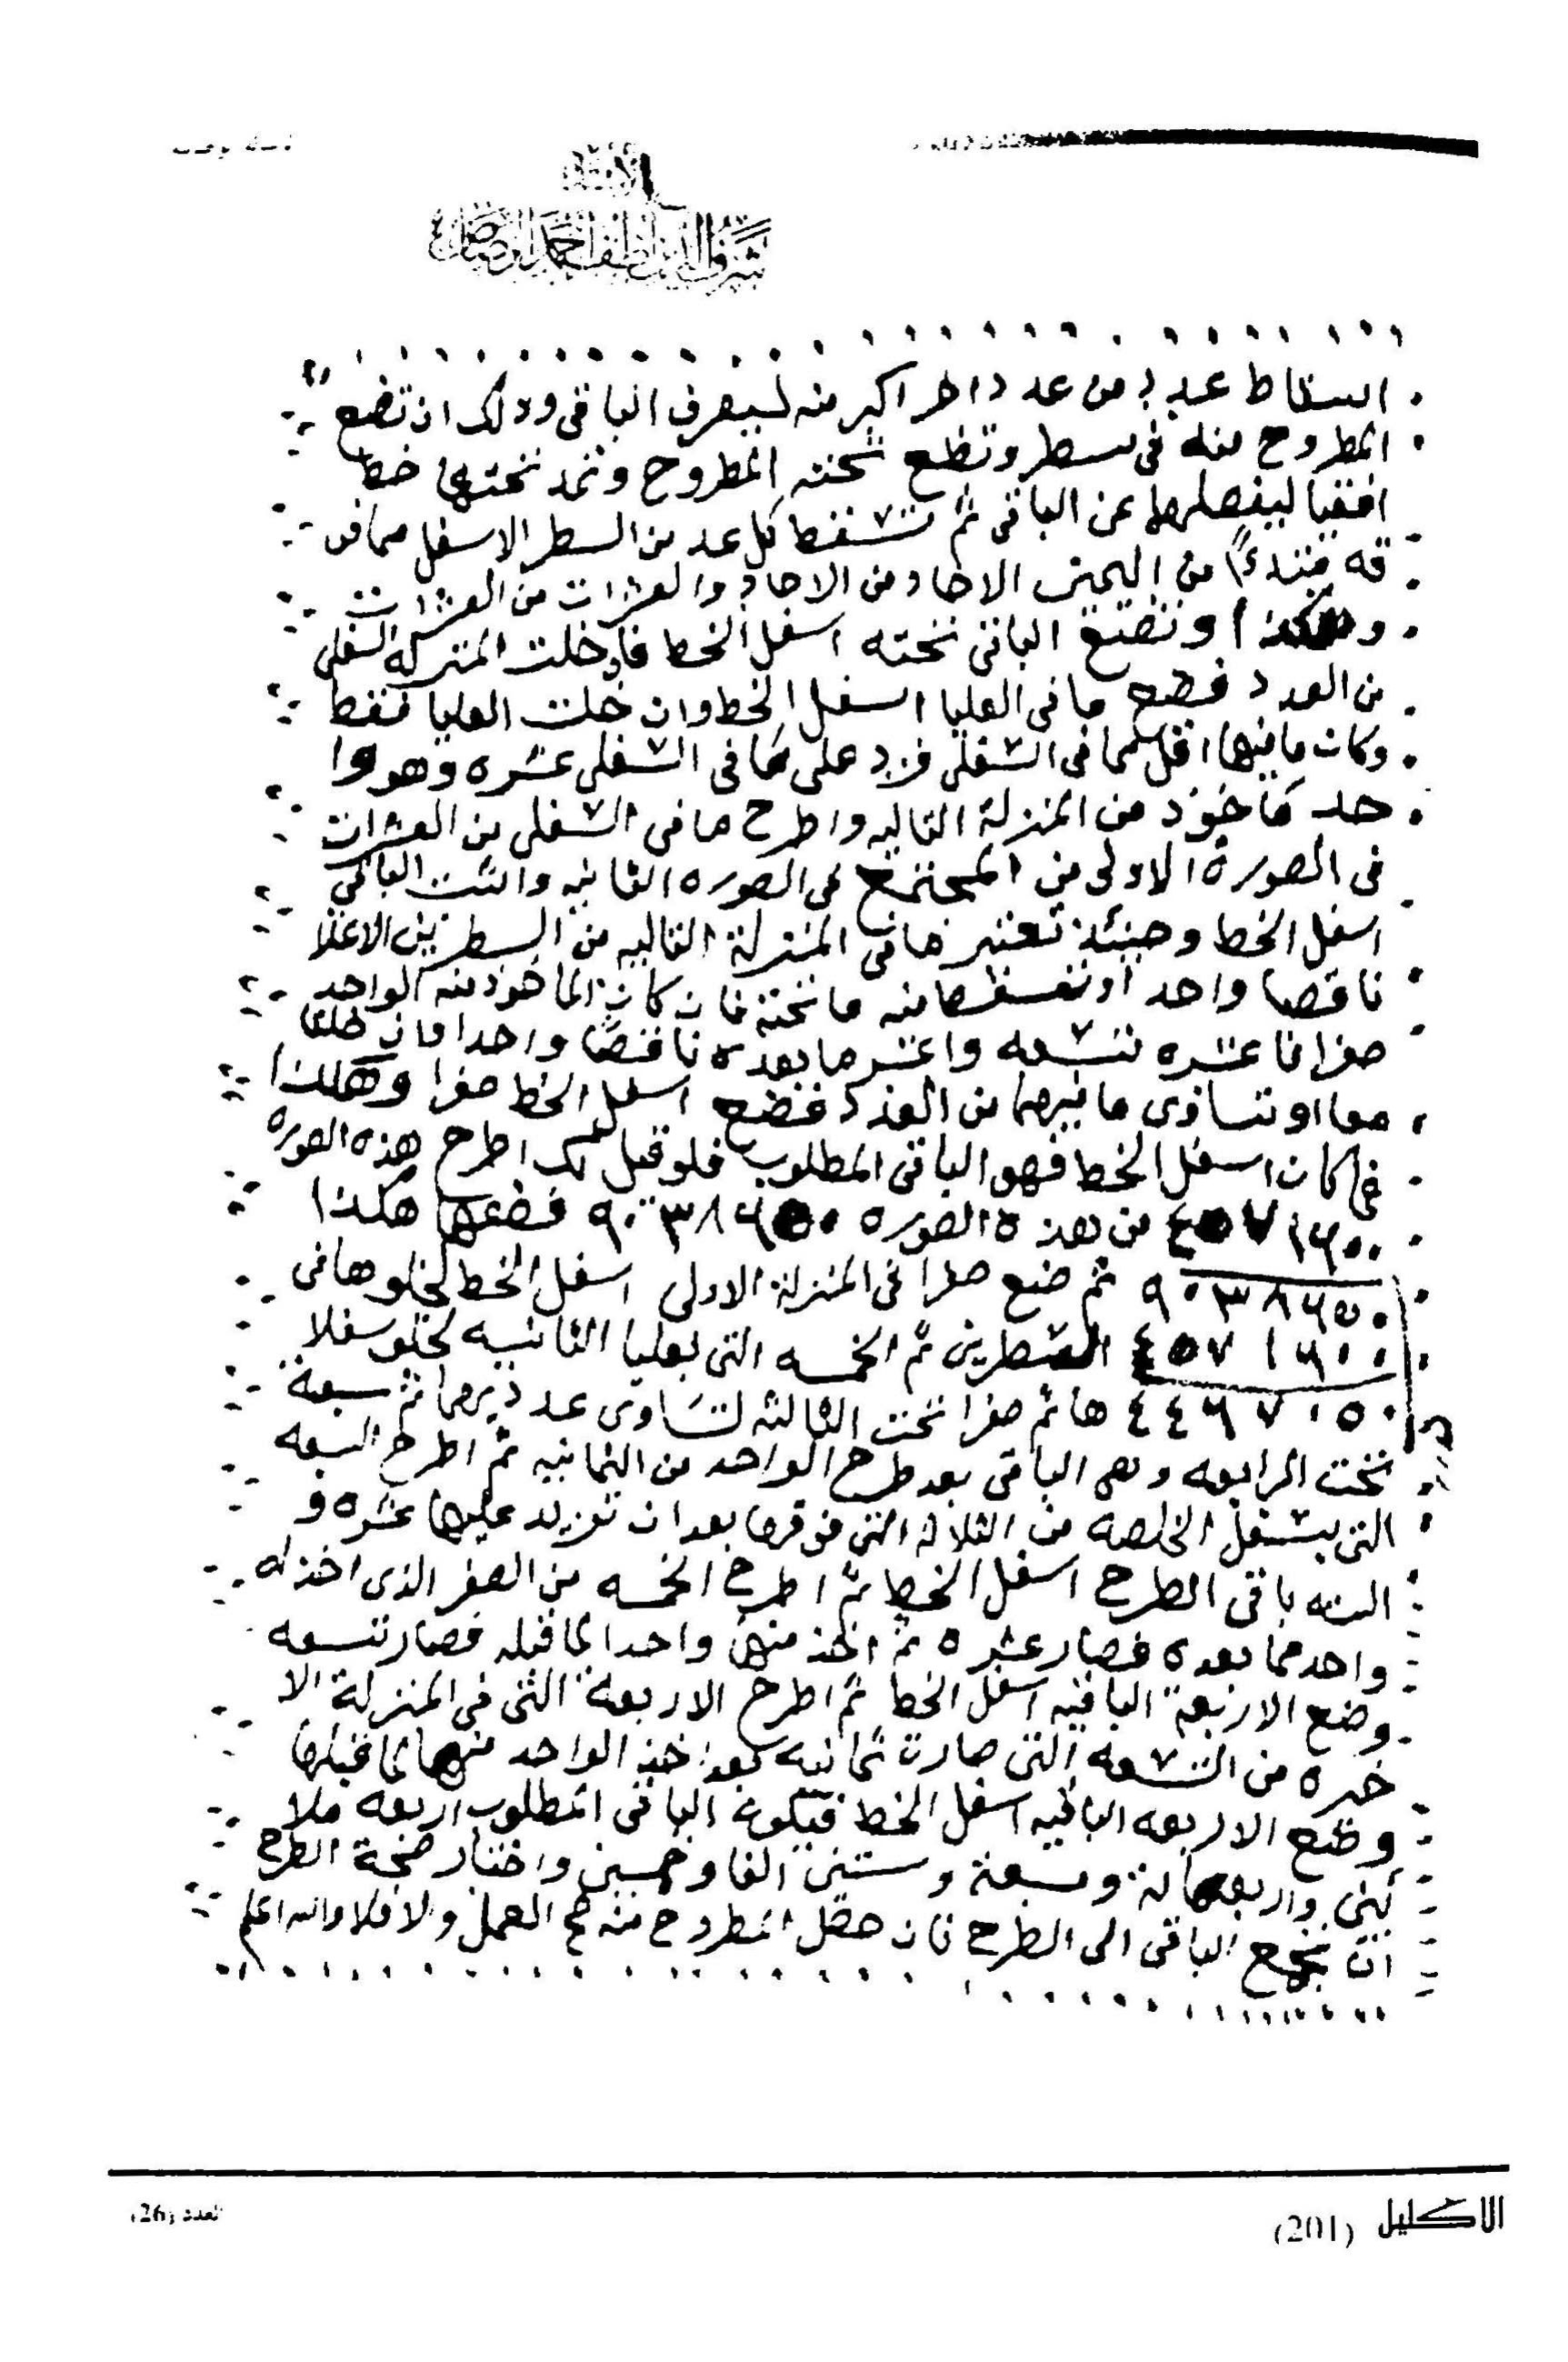 اسقاط عدد من عدد اخر اكبر منه ليعرف الباقى وذلك ان تضع
المطروح منه فى سطر وتظع تحته المطروح وتمد تحتهما خط
افقيا ليفصلهما عن الباقى ثم تسقط كل عدد من السطر الاسفل مما فو
قه مبتدءًا من اليمين الاحاد من الاحاد والعشرات من العشرات
وهكذا وتضع الباقى تحته اسفل الخط فان خلت المنزله السفلى
من العدد فضع ما فى العليا اسفل الخط وان خلت العليا فقط
وكان ما فيها اقل مما فى السفلى فزد على ما فى السفلى عشره وهو وا
حد مأخوذ من المنزلة التاليه واطرح ما فى السفلى من العشرات
فى الصورة الاولى من المجتمع فى الصوره الثانيه واثبت الباقى
اسفل الخط وحينئذ تعتبر ما فى المنزلة التاليه من السطرين الاعلا
ناقصا واحد او تسقط منه ما تحته فان كان المأخوذ منه الواحد
صفرا فاعتبره تسعه واعتبر ما بعده ناقصًا واحدا فان خلتا
معا او تساوى ما فيهما من العدد فضع اسفل الخط صفرا وهكذا
فما كان اسفل الخط فهو الباقى المطلوب فلو قيل لك اطرح هذه الصوره
٤٥٧١٦٠٠ من هذه الصوره ٩٠٣٨٦٥٠ فضعها هكذا
٩٠٣٨٦٥٠ ثم ضع صفرا فى المنزلة الاولى اسفل الخط لخلوها فى
٤٥٧١٦٠٠ السطرين ثم الخمسه التى بعليا الثانيه لخلو سفلا
٤٤٦٧٠٥٠ ها ثم صفرا تحت الثالثه لتساوى عدديهما ثم سبعة
تحت الرابعه وهى الباقى بعد طرح الواحد من الثمانيه ثم اطرح السبعه
التى بسفل الخامسه من الثلاثه التى فوقها بعد ان تزيد عليها عشره و
السته باقى الطرح اسفل الخط ثم اطرح الخمسه من الصفر الذى اخذ له
واحد مما بعده فصار عشره ثم اخذ منها واحدا لما قبله فصار تسعه
وضع الاربعة الباقيه اسفل الخط ثم اطرح الاربعة التى فى المنزلة الا
خيره من التسعه التى صارت ثمانيه بعد اخذ الواحد منها لما قبلها
وظع الاربعه الباقيه اسفل الخط فيكون الباقى المطلوب اربعه ملا
يين واربعمائة وسبعة وستين الفا وخمسين واختبار صحة الطرح
ان تجمع الباقى الى الطرح فان حصل المطروح منه صح العمل والا فلا والله اعلم
الاكليل (201)
العدد (26)